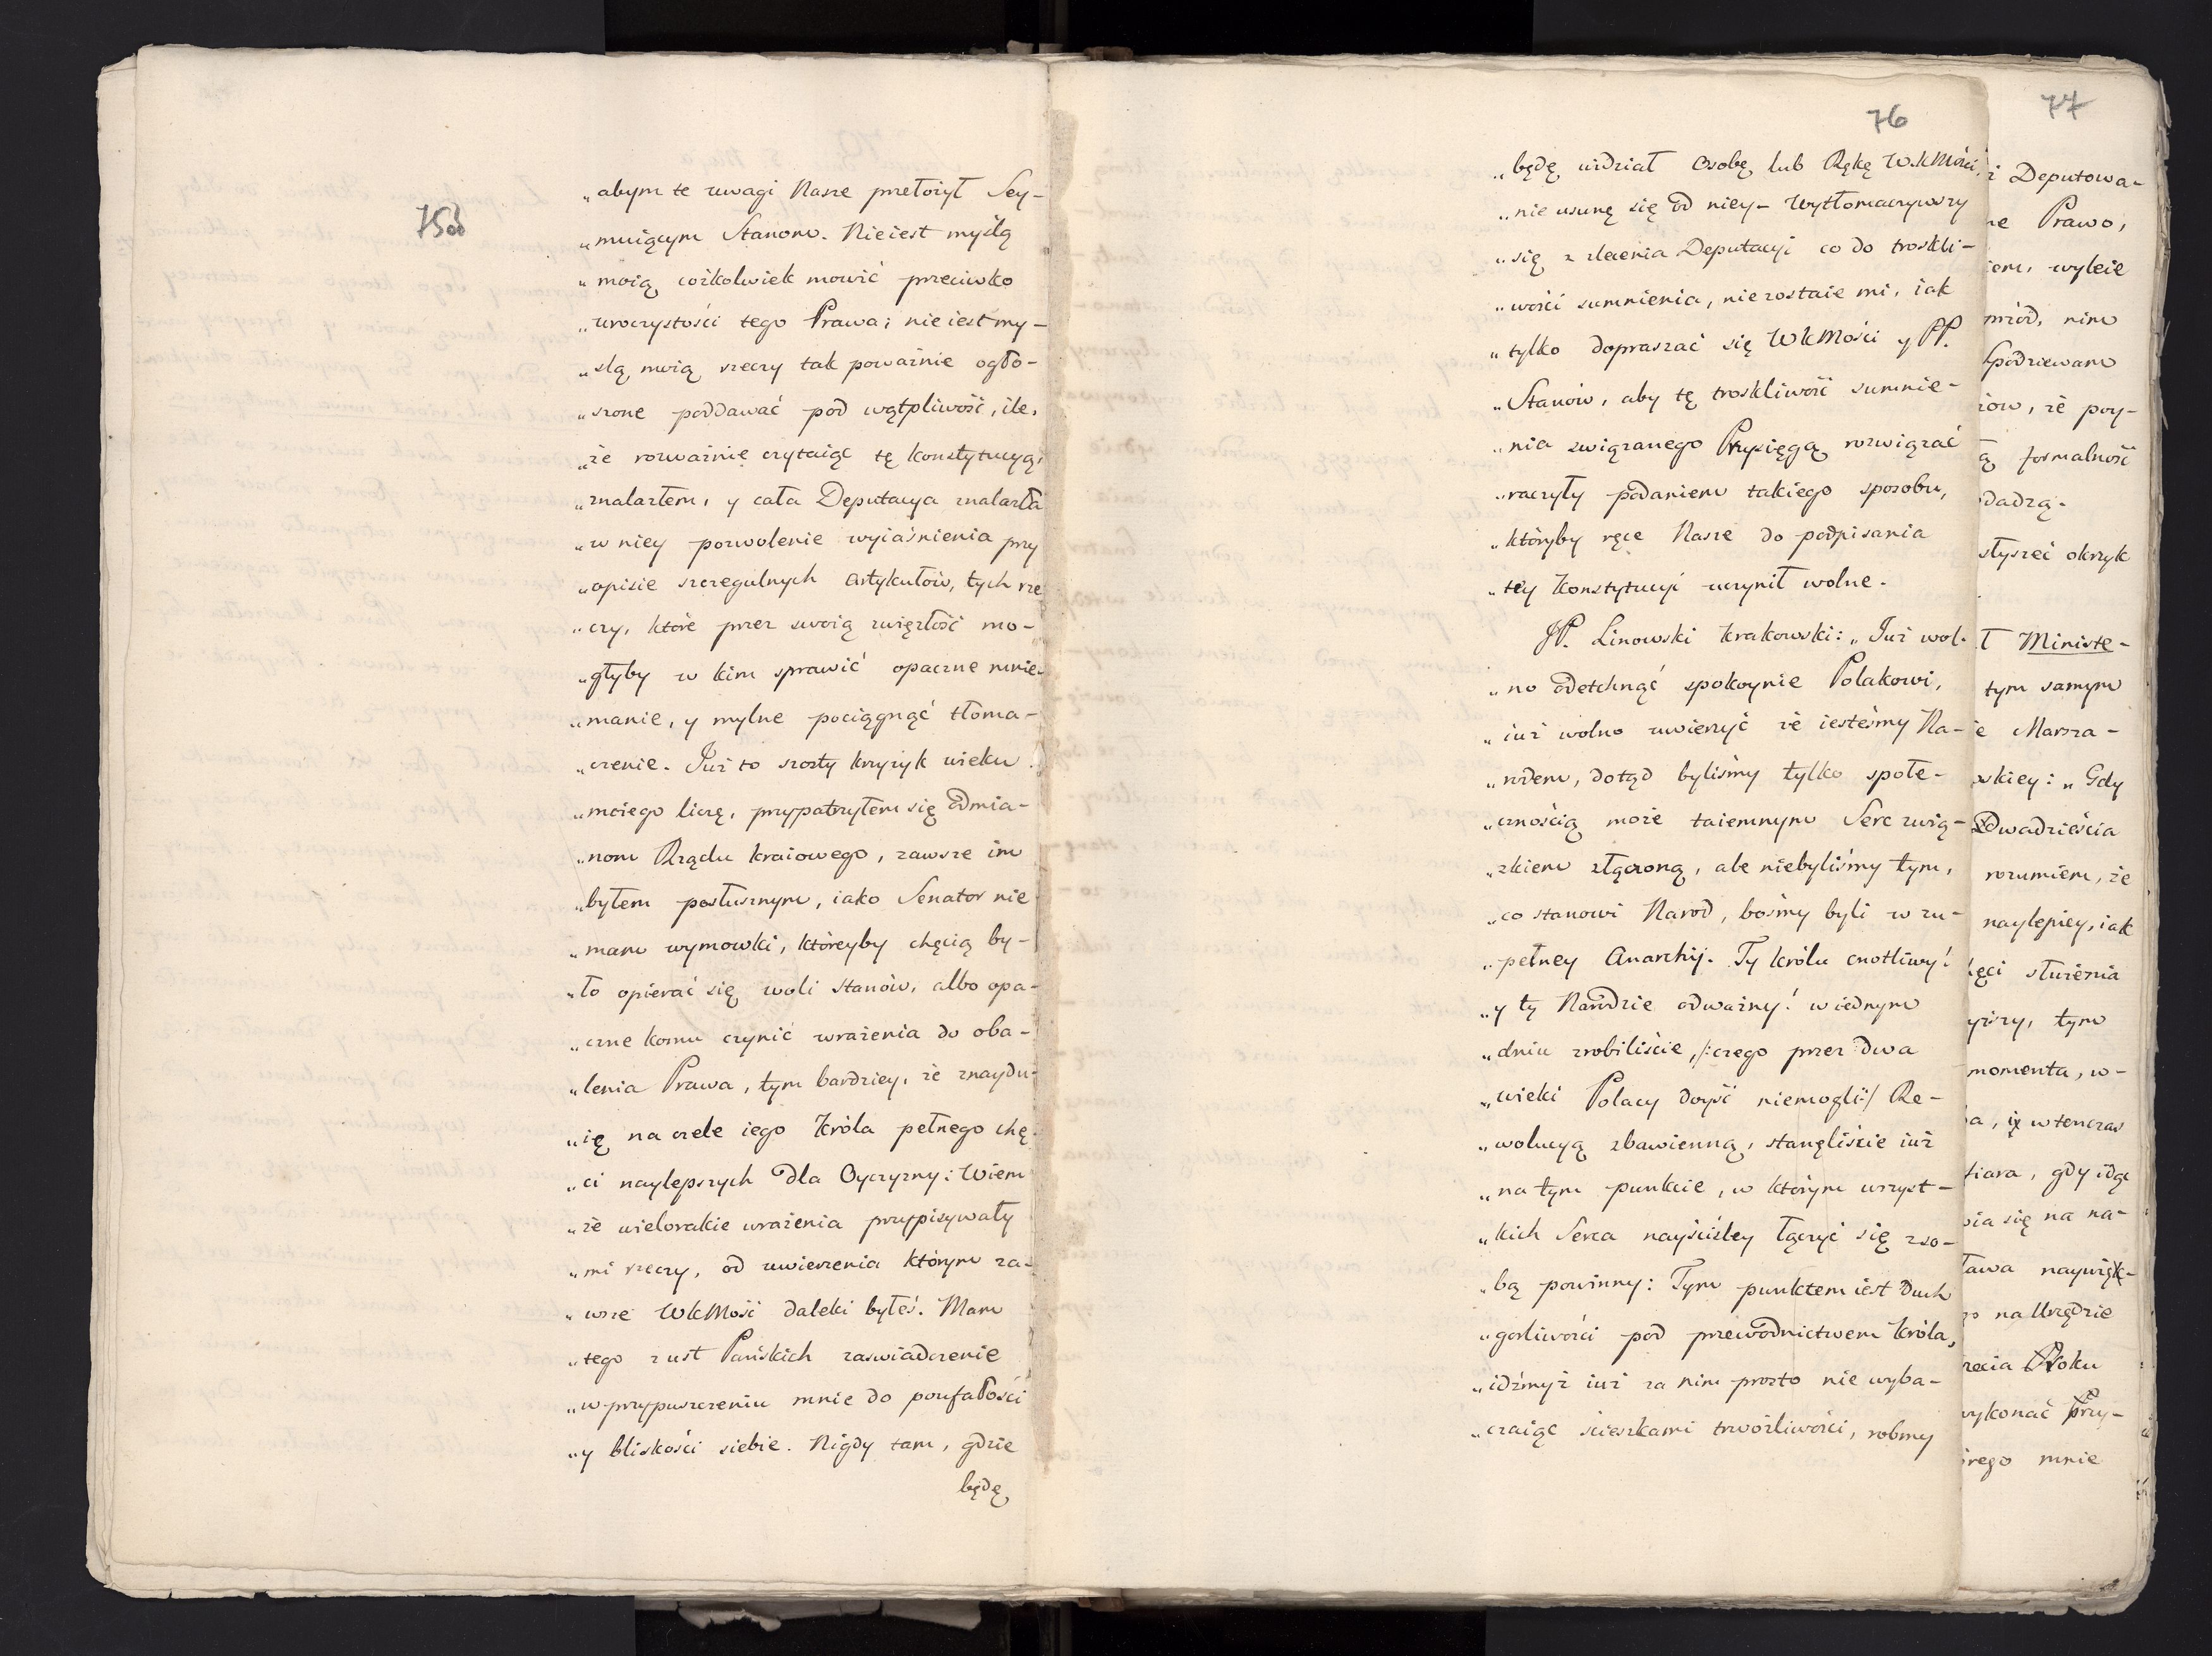 75b
„abym te uwagi Nasze przełożył Sey-
„muiącym Stanom. Nie iest myślą
„moią cożkolwiek mowić przeciwko
„uroczystości tego Prawa; nie iest my-
„slą moią rzeczy tak poważnie ogło-
„szone poddawać pod wątpliwość, ile,
„że rozważnie czytaiąc tę Konstytucyą,
„znalazłem, y cała Deputacya znalazła
„w niey pozwolenie wyiaśnienia przy
„opisie szczegulnych Artykułów, tych rze
„czy, które przez swoią zwięzłość mo-
„głyby w kim sprawić opaczne mnie-
„manie, y mylne pociągnąć tłoma-
„czenie. Już to szosty krzyżyk wieku
„moiego liczę, przypatrzyłem się odmia-
„nom Rządu kraiowego, zawsze im
„byłem posłusznym, iako Senator nie
„mam wymowki, któreyby chęcią by-
„ło opierać się woli Stanów, albo opa-
„czne komu czynić wrażenia do oba-
„lenia Prawa, tym bardziey, że znaydu-
„ię na czele iego Króla pełnego chę-
„ci naylepszych dla Oyczyzny: Wiem
„że wielorakie wrażenia przypisywały
„mi rzeczy, od uwierzenia którym za-
„wsze WKMość daleki byłeś. Mam
„tego z ust Pańskich zaswiadczenie
„w przypuszczeniu mnie do poufałości
„y bliskości siebie. Nigdy tam, gdzie
będę
76
„będę widział Osobę lub Rękę WKMości,
„nie usunę się od niey- Wytłomaczywszy
„się z zlecenia Deputacyi co do troskli-
„wości sumnienia, niezostaie mi, iak
„tylko dopraszać się WKMości y PP.
„Stanów, aby tę troskliwość sumnie-
„nia związanego Przysięgą rozwiązać
„raczyły podaniem takiego sposobu,
„któryby ręce Nasze do podpisania
„tey Konstytucyi uczynił wolne.
JP. Linowski Krakowski: „Już wol-
„no odetchnąć spokoynie Polakowi,
„iuż wolno uwierzyć że iesteśmy Na-
„rodem, dotąd byliśmy tylko społe-
„cznością może taiemnym Serc zwią-
„zkiem złączoną, ale niebyliśmy tym,
„co stanowi Narod, bośmy byli w zu-
„pełney Anarchij. Ty Królu cnotliwy!
„y ty Narodzie odważny! w iednym
„dniu zrobiliście, /:czego przez dwa
„wieki Polacy doyść niemogli:/ Re-
„wolucyą zbawienną, stanęliście iuż
„na tym punkcie, w którym wszyst-
„kich Serca nayściśley łączyć się z so-
„bą powinny: Tym punktem iest duch
„gorliwości pod przewodnictwem Króla,
„idźmyż iuż za nim prosto nie wyba-
„czaiąc ścieszkami trwożliwości, robmy
77
i Deputowa-
Prawo,
wyleie
nim
spodziewam
że przy-
formalność
słyszeć okrzyk
Ministe-
tym samym
Marsza-
„Gdy
Dwadzieścia
rozumiem, że
naylepiey, iak
służenia
tym
momenta, w-
iż wtenczas
gdy idąc
się na na-
naywięk-
na Urzędzie
Roku
wykonać Przy-
mnie